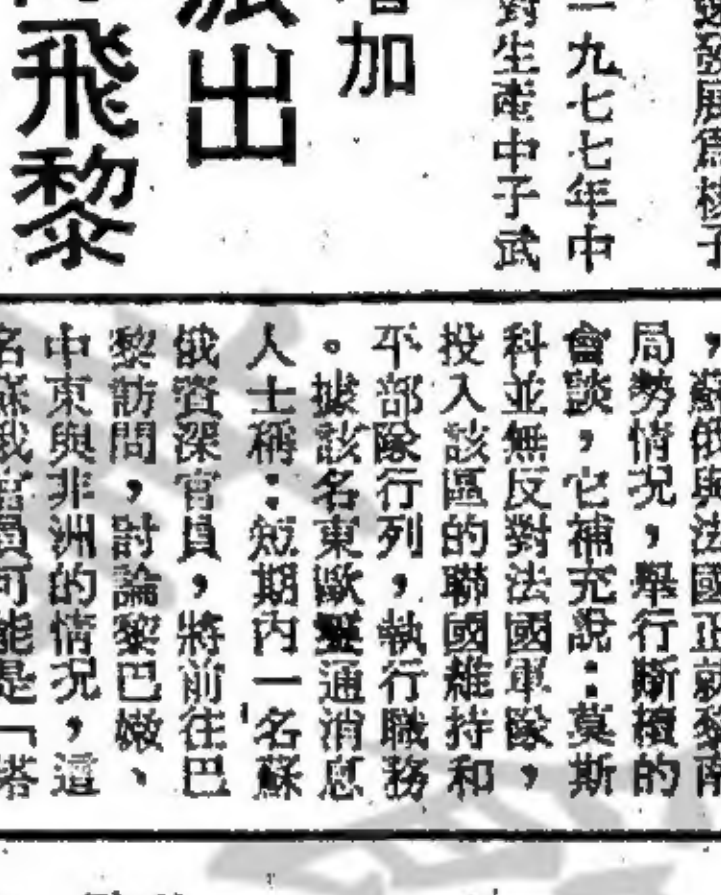 展為核子
一九七七年中
對生產中子武
加
派出
飛黎
，蘇俄與法國正就黎南
局勢情況，舉行斷續的
會談，它補充說：莫斯
科並無反對法國軍隊，
投入該區的聯國維持和
平部隊行列，執行職務
。據該名東歐靈通消息
人士稱：短期內一名蘇
俄資深官員，將前往巴
黎訪問，討論黎巴嫩、
中東與非洲的情況，這
名蘇俄官員可能是「塔